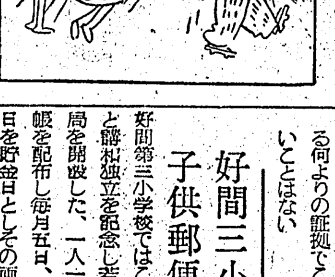 る何よりの証拠で
いことはない
好間三小
子供郵便
好間第三小学校ではこ
と講和独立を記念し若
局を開設した、一人一
帳を配布し毎月五日、
日を貯金日としその両